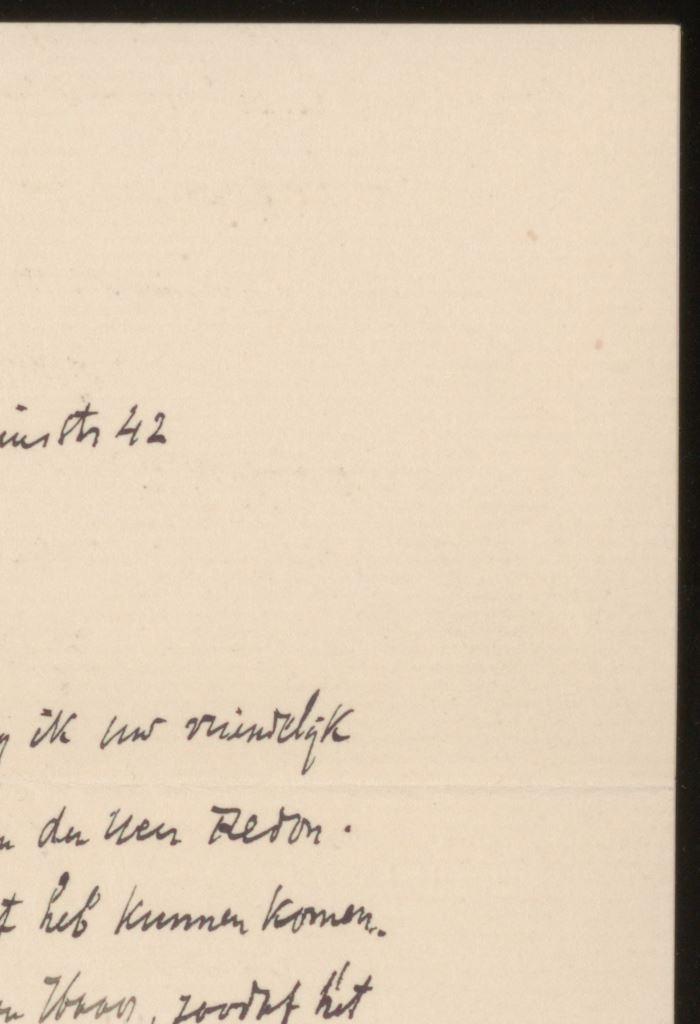 str 42
ik uw vriendelijk
den Heer Redon.
heb kunnen komen.
zoodat het